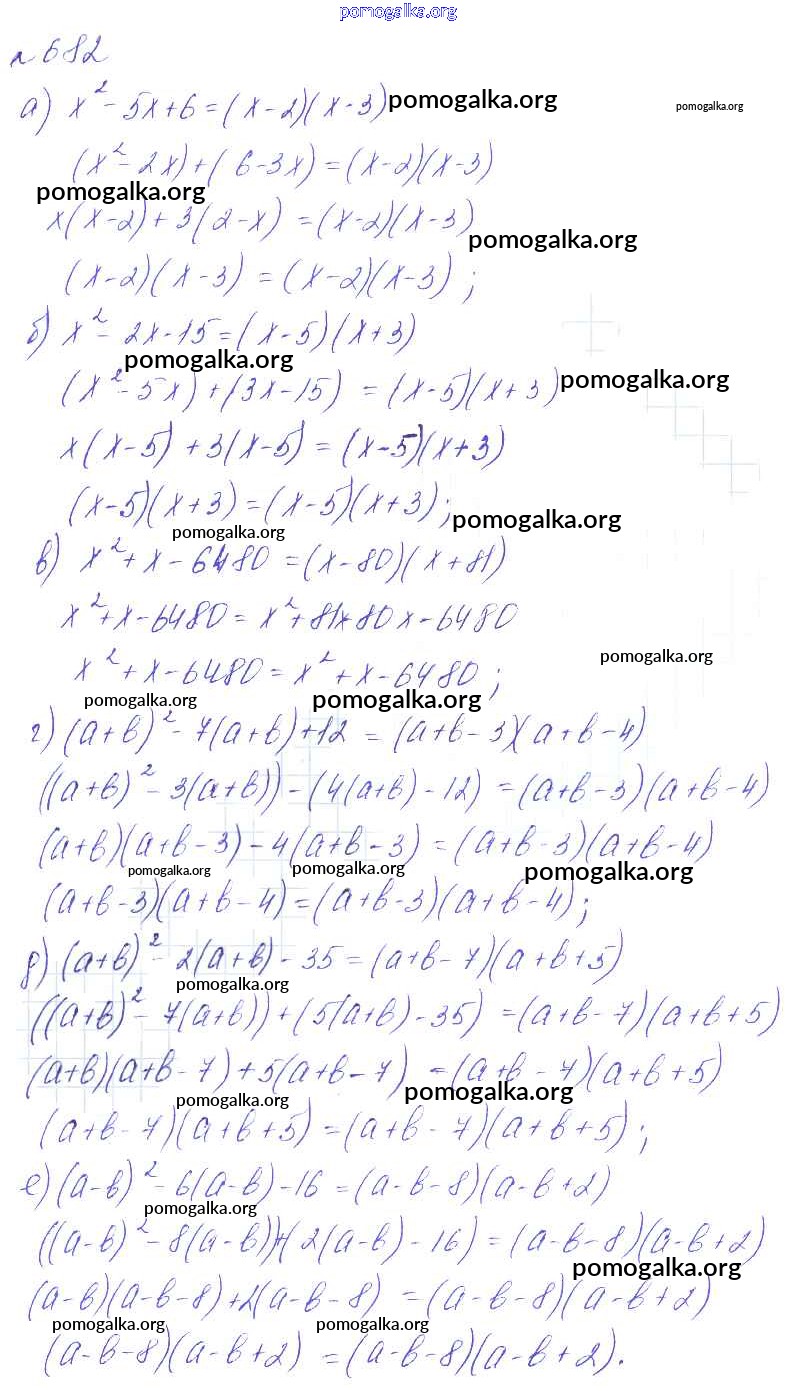 pomogalka.org
№ 682
а) x² - 5x + 6 = (x-2)(x-3) pomogalka.org pomogalka.org
(x² - 2x) + (6 - 3x) = (x-2)(x-3)
pomogalka.org
x(x-2) + 3(2-x) = (x-2)(x-3)
pomogalka.org
(x-2)(x-3) = (x-2)(x-3);
б) x² - 2x - 15 = (x-5)(x+3)
pomogalka.org
(x² - 5x) + (3x - 15) = (x-5)(x+3) pomogalka.org
x(x-5) + 3(x-5) = (x-5)(x+3)
(x-5)(x+3) = (x-5)(x+3);
pomogalka.org
pomogalka.org
в) x² + x - 6480 = (x-80)(x+81)
x² + x - 6480 = x² + 81x - 80x - 6480
pomogalka.org
x² + x - 6480 = x² + x - 6480;
pomogalka.org pomogalka.org
г) (a+b)² - 7(a+b) + 12 = (a+b-3)(a+b-4)
((a+b)² - 3(a+b)) - (4(a+b) - 12) = (a+b-3)(a+b-4)
(a+b)(a+b-3) - 4(a+b-3) = (a+b-3)(a+b-4)
pomogalka.org pomogalka.org pomogalka.org
(a+b-3)(a+b-4) = (a+b-3)(a+b-4);
д) (a+b)² - 2(a+b) - 35 = (a+b-7)(a+b+5)
pomogalka.org
((a+b)² - 7(a+b)) + (5(a+b) - 35) = (a+b-7)(a+b+5)
(a+b)(a+b-7) + 5(a+b-7) = (a+b-7)(a+b+5)
pomogalka.org pomogalka.org
(a+b-7)(a+b+5) = (a+b-7)(a+b+5);
е) (a-b)² - 6(a-b) - 16 = (a-b-8)(a-b+2)
pomogalka.org
((a-b)² - 8(a-b)) + (2(a-b) - 16) = (a-b-8)(a-b+2)
pomogalka.org
(a-b)(a-b-8) + 2(a-b-8) = (a-b-8)(a-b+2)
pomogalka.org pomogalka.org
(a-b-8)(a-b+2) = (a-b-8)(a-b+2).